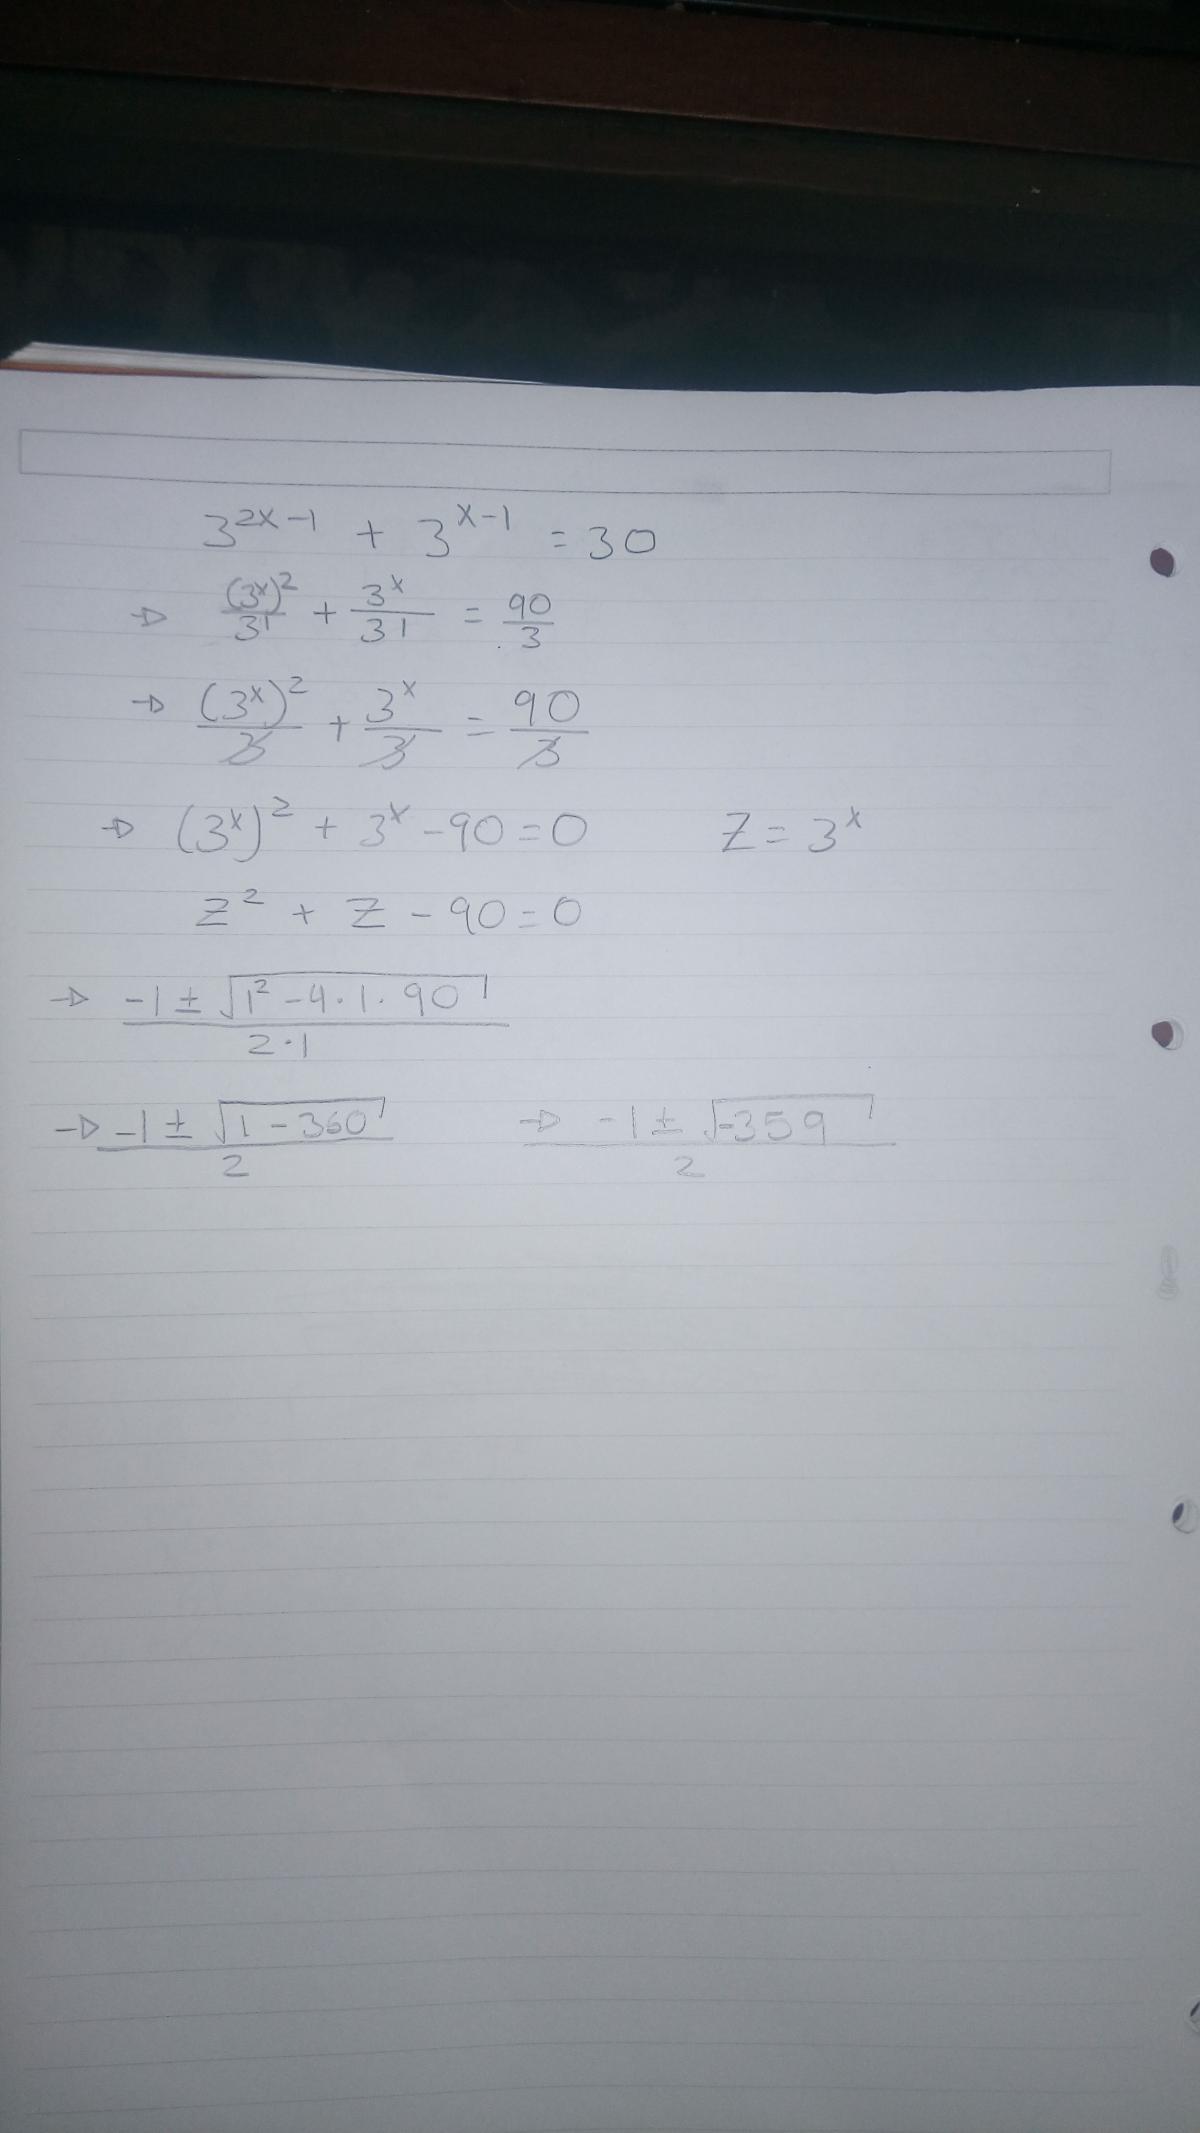 3^{2x-1} + 3^{x-1} = 30
⇒ (3^x)^2/3^1 + 3^x/3^1 = 90/3
⇒ (3^x)^2/3 + 3^x/3 = 90/3
⇒ (3^x)^2 + 3^x - 90 = 0 Z = 3^x
Z^2 + Z - 90 = 0
⇒ (-1 ± √(1^2 - 4·1·90))/(2·1)
⇒ (-1 ± √(1 - 360))/2 ⇒ (-1 ± √(-359))/2